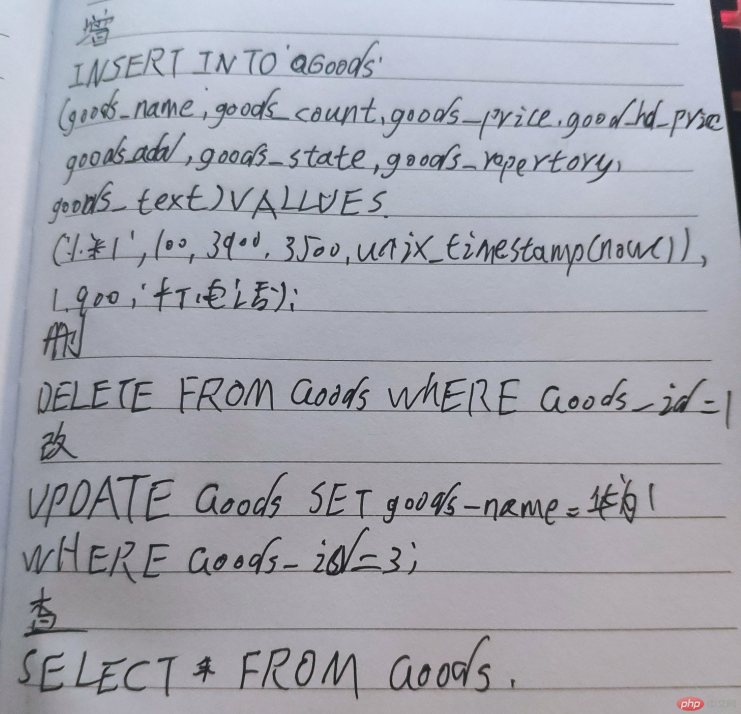 增
INSERT INTO 'aGoods'
(goods_name,goods_count,goods_price,good_hd_price
goods_add,goods_state,goods_repertory,
goods_text)VALLUES
('小米1',100,3900,3500,unix_timestamp(now()),
1,900,'打电话');
删
DELETE FROM Goods WHERE Goods_id=1
改
UPDATE Goods SET goods-name=华为1
WHERE Goods_id=3;
查
SELECT * FROM Goods.
php